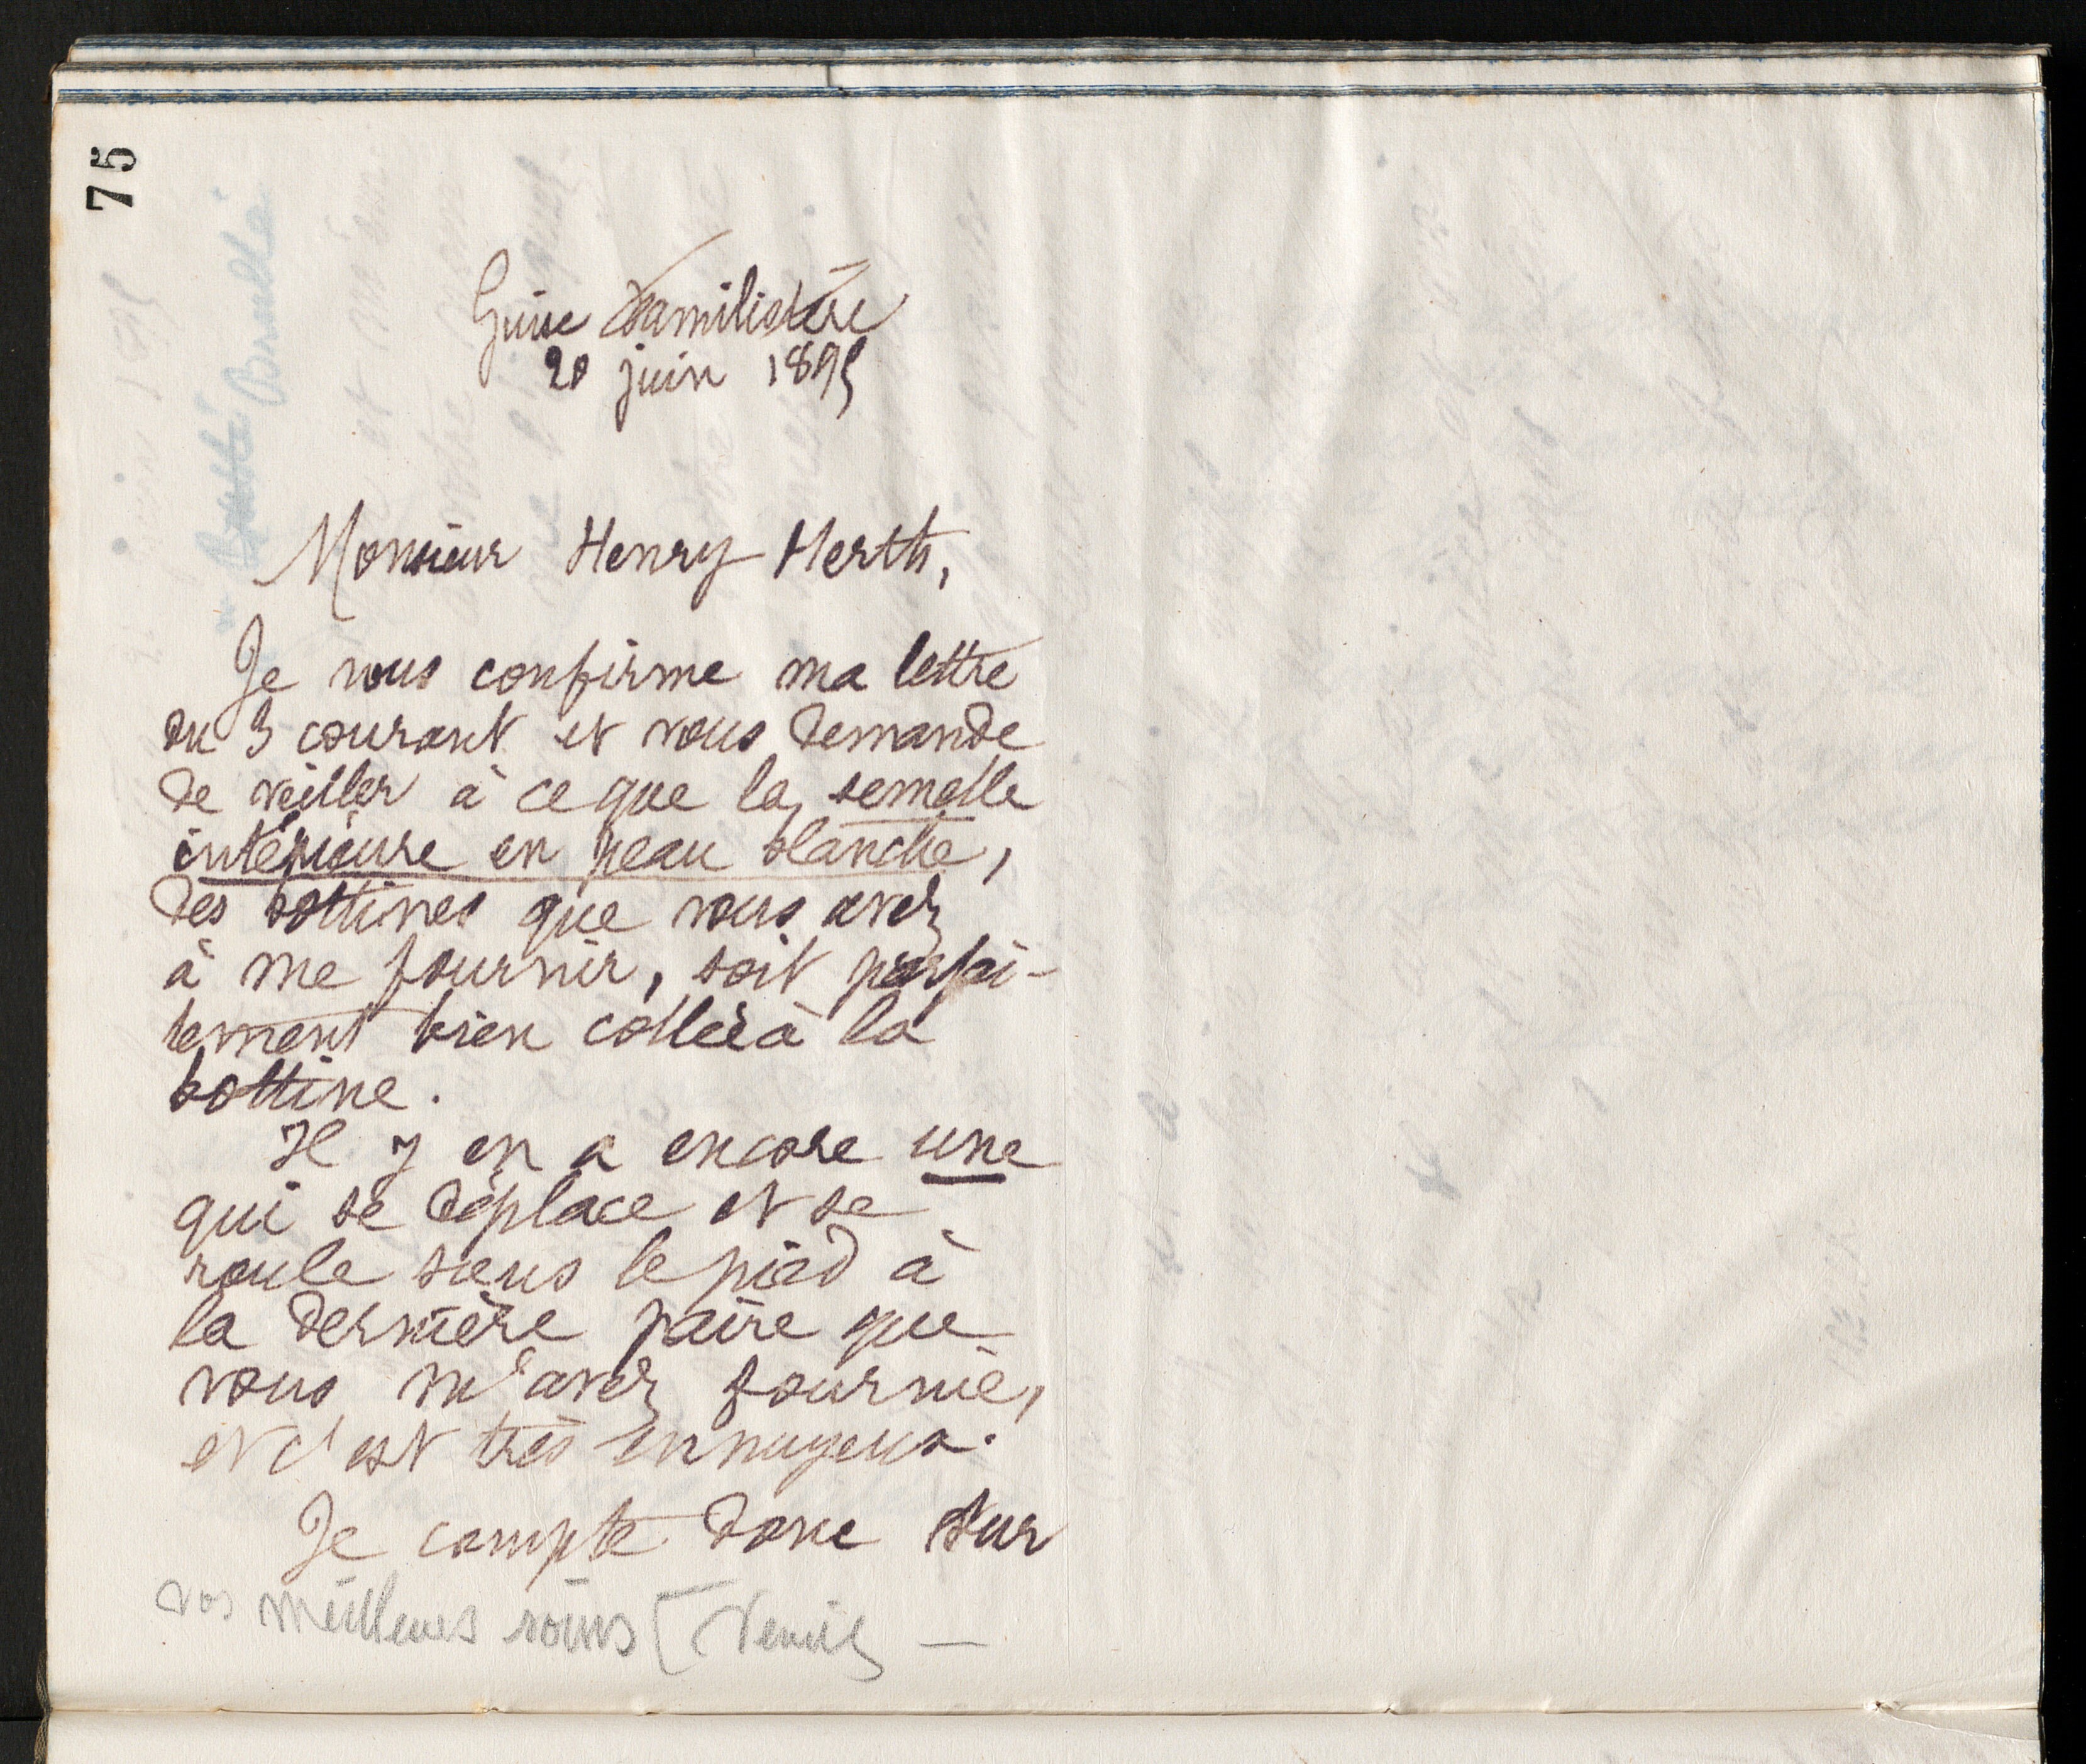 75
Guise Familistère
20 juin 1895
Monsieur Henry Merth,
Je vous confirme ma lettre
du 3 courant et vous demande
de veiller à ce que la semelle
intérieure en peau blanche,
des bottines que vous avez
à me fournir, soit parfai-
tement bien collée à la
bottine.
Il y en a encore une
qui se déplace et se
roule sous le pied à
la dernière paire que
vous m'avez fournie,
et c'est très ennuyeux.
Je compte donc sur
vos meilleurs soins